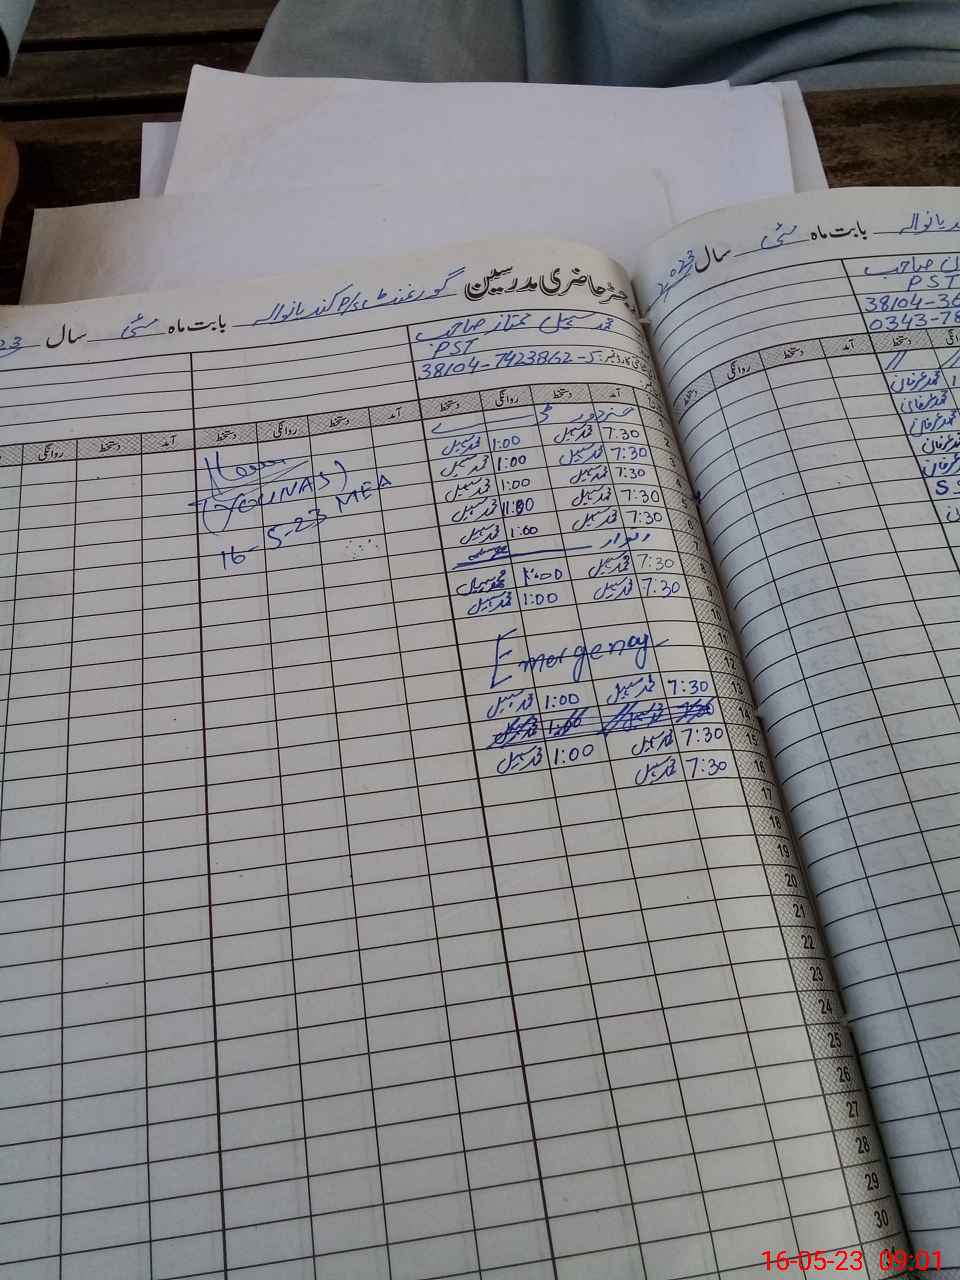 رجسٹر حاضری مدرسین گورنمنٹ P/S کندیانوالہ بابت ماہ مئی سال 23
محمد سہیل ممتاز صاحب
PST
38104-7423862-5
آمد دستخط روانگی دستخط آمد دستخط روانگی دستخط آمد دستخط روانگی
1 مزدور ڈے
2 7:30 محمد سہیل 1:00 محمد سہیل
7:30 محمد سہیل 1:00 محمد سہیل
7:30 محمد سہیل 1:00 محمد سہیل
7:30 محمد سہیل 11:00 محمد سہیل
6 7:30 محمد سہیل 1:00 محمد سہیل
7 اتوار
8 7:30 محمد سہیل 1:00 محمد سہیل
9 7:30 محمد سہیل 1:00 محمد سہیل
11
12 Emergency
13 7:30 محمد سہیل 1:00 محمد سہیل
14
15 7:30 محمد سہیل 1:00 محمد سہیل
16 7:30 محمد سہیل
17
18
19
20
21
22
23
24
25
26
27
28
29
30
(YOUNAS)
16-5-23 MEA
بابت ماہ مئی سال 023
صاحب
PST
38104-36
0343-78
دستخط آمد دستخط روانگی دستخط
محمد عرفان
محمد عرفان
محمد عرفان
محمد عرفان
محمد عرفان
16-05-23 09:01